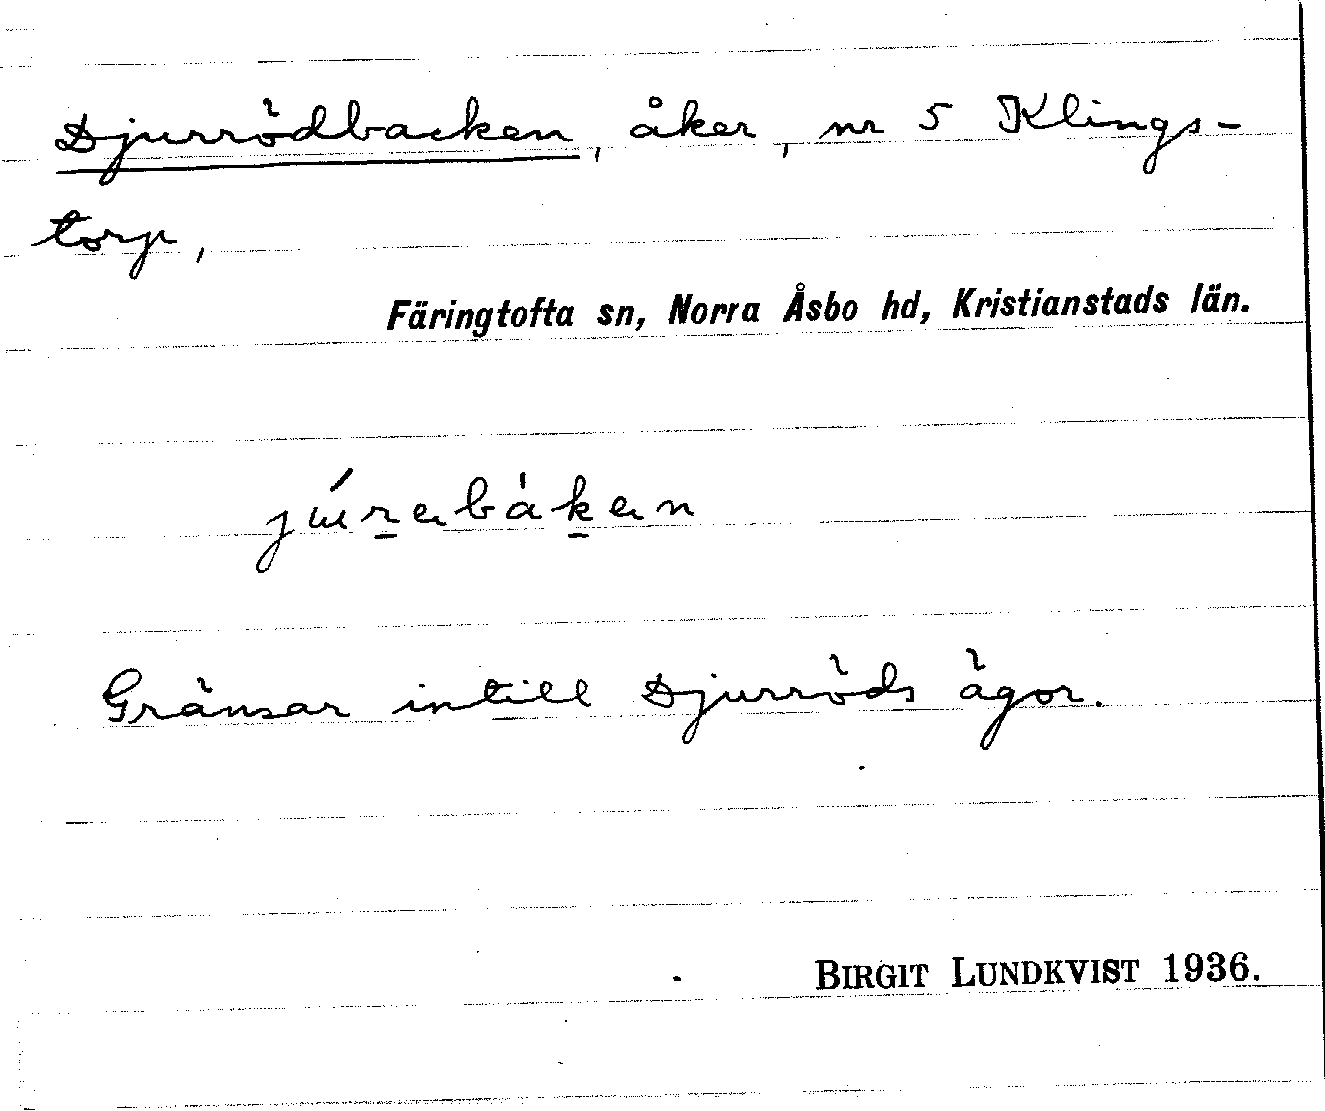 Djurrödbacken, åker, nr 5 Klings-
torp,
Färingtofta sn, Norra Åsbo hd, Kristianstads län.
Gränsar intill Djurröds ägor.
BIRGIT LUNDKVIST 1936.